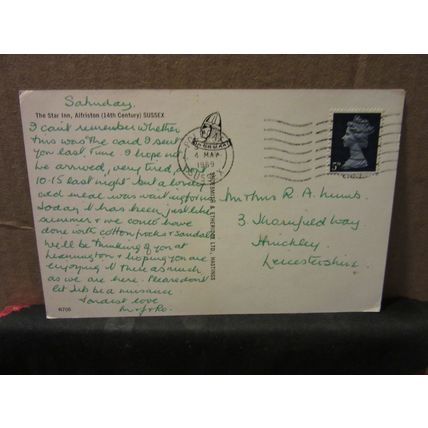 Saturday
The Star Inn, Alfriston (14th Century) SUSSEX
I can't remember whether
this was the card I sent
you last time. I hope not
we arrived, very tired, about
10-15 last night but a lovely
cold meal was waiting for us
Today it has been just like
summer & we could have
done with cotton frocks & sandals
We'll be thinking of you at
& hoping you are
enjoying it there as much
as we are here. Please don't
let be a nuisance
Fondest love
4 MAY
1969
SUSSEX
5D
Mr & Mrs R. A.
3.
Hinckley
Leicestershire
& ETHERIDGE LTD., HASTINGS